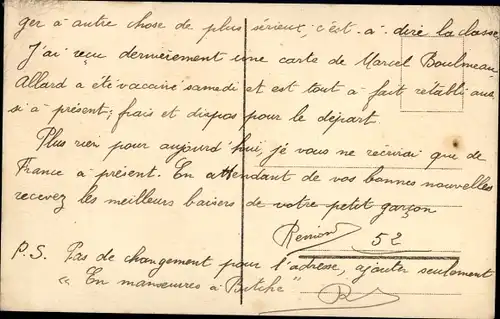 ger à autre chose de plus sérieux, c'est-à-dire la classe.
J'ai reçu dernièrement une carte de Marcel Boulmeau
Allard a été vacciné samedi et est tout à fait rétabli aus
si à présent ; frais et dispos pour le départ.
Plus rien pour aujourd'hui, je vous ne récrirai que de
France à présent. En attendant de vos bonnes nouvelles
recevez les meilleurs baisers de votre petit garçon
52
P.S. Pas de changement pour l'adresse, ajouter seulement
"En manœuvres à Bitche"